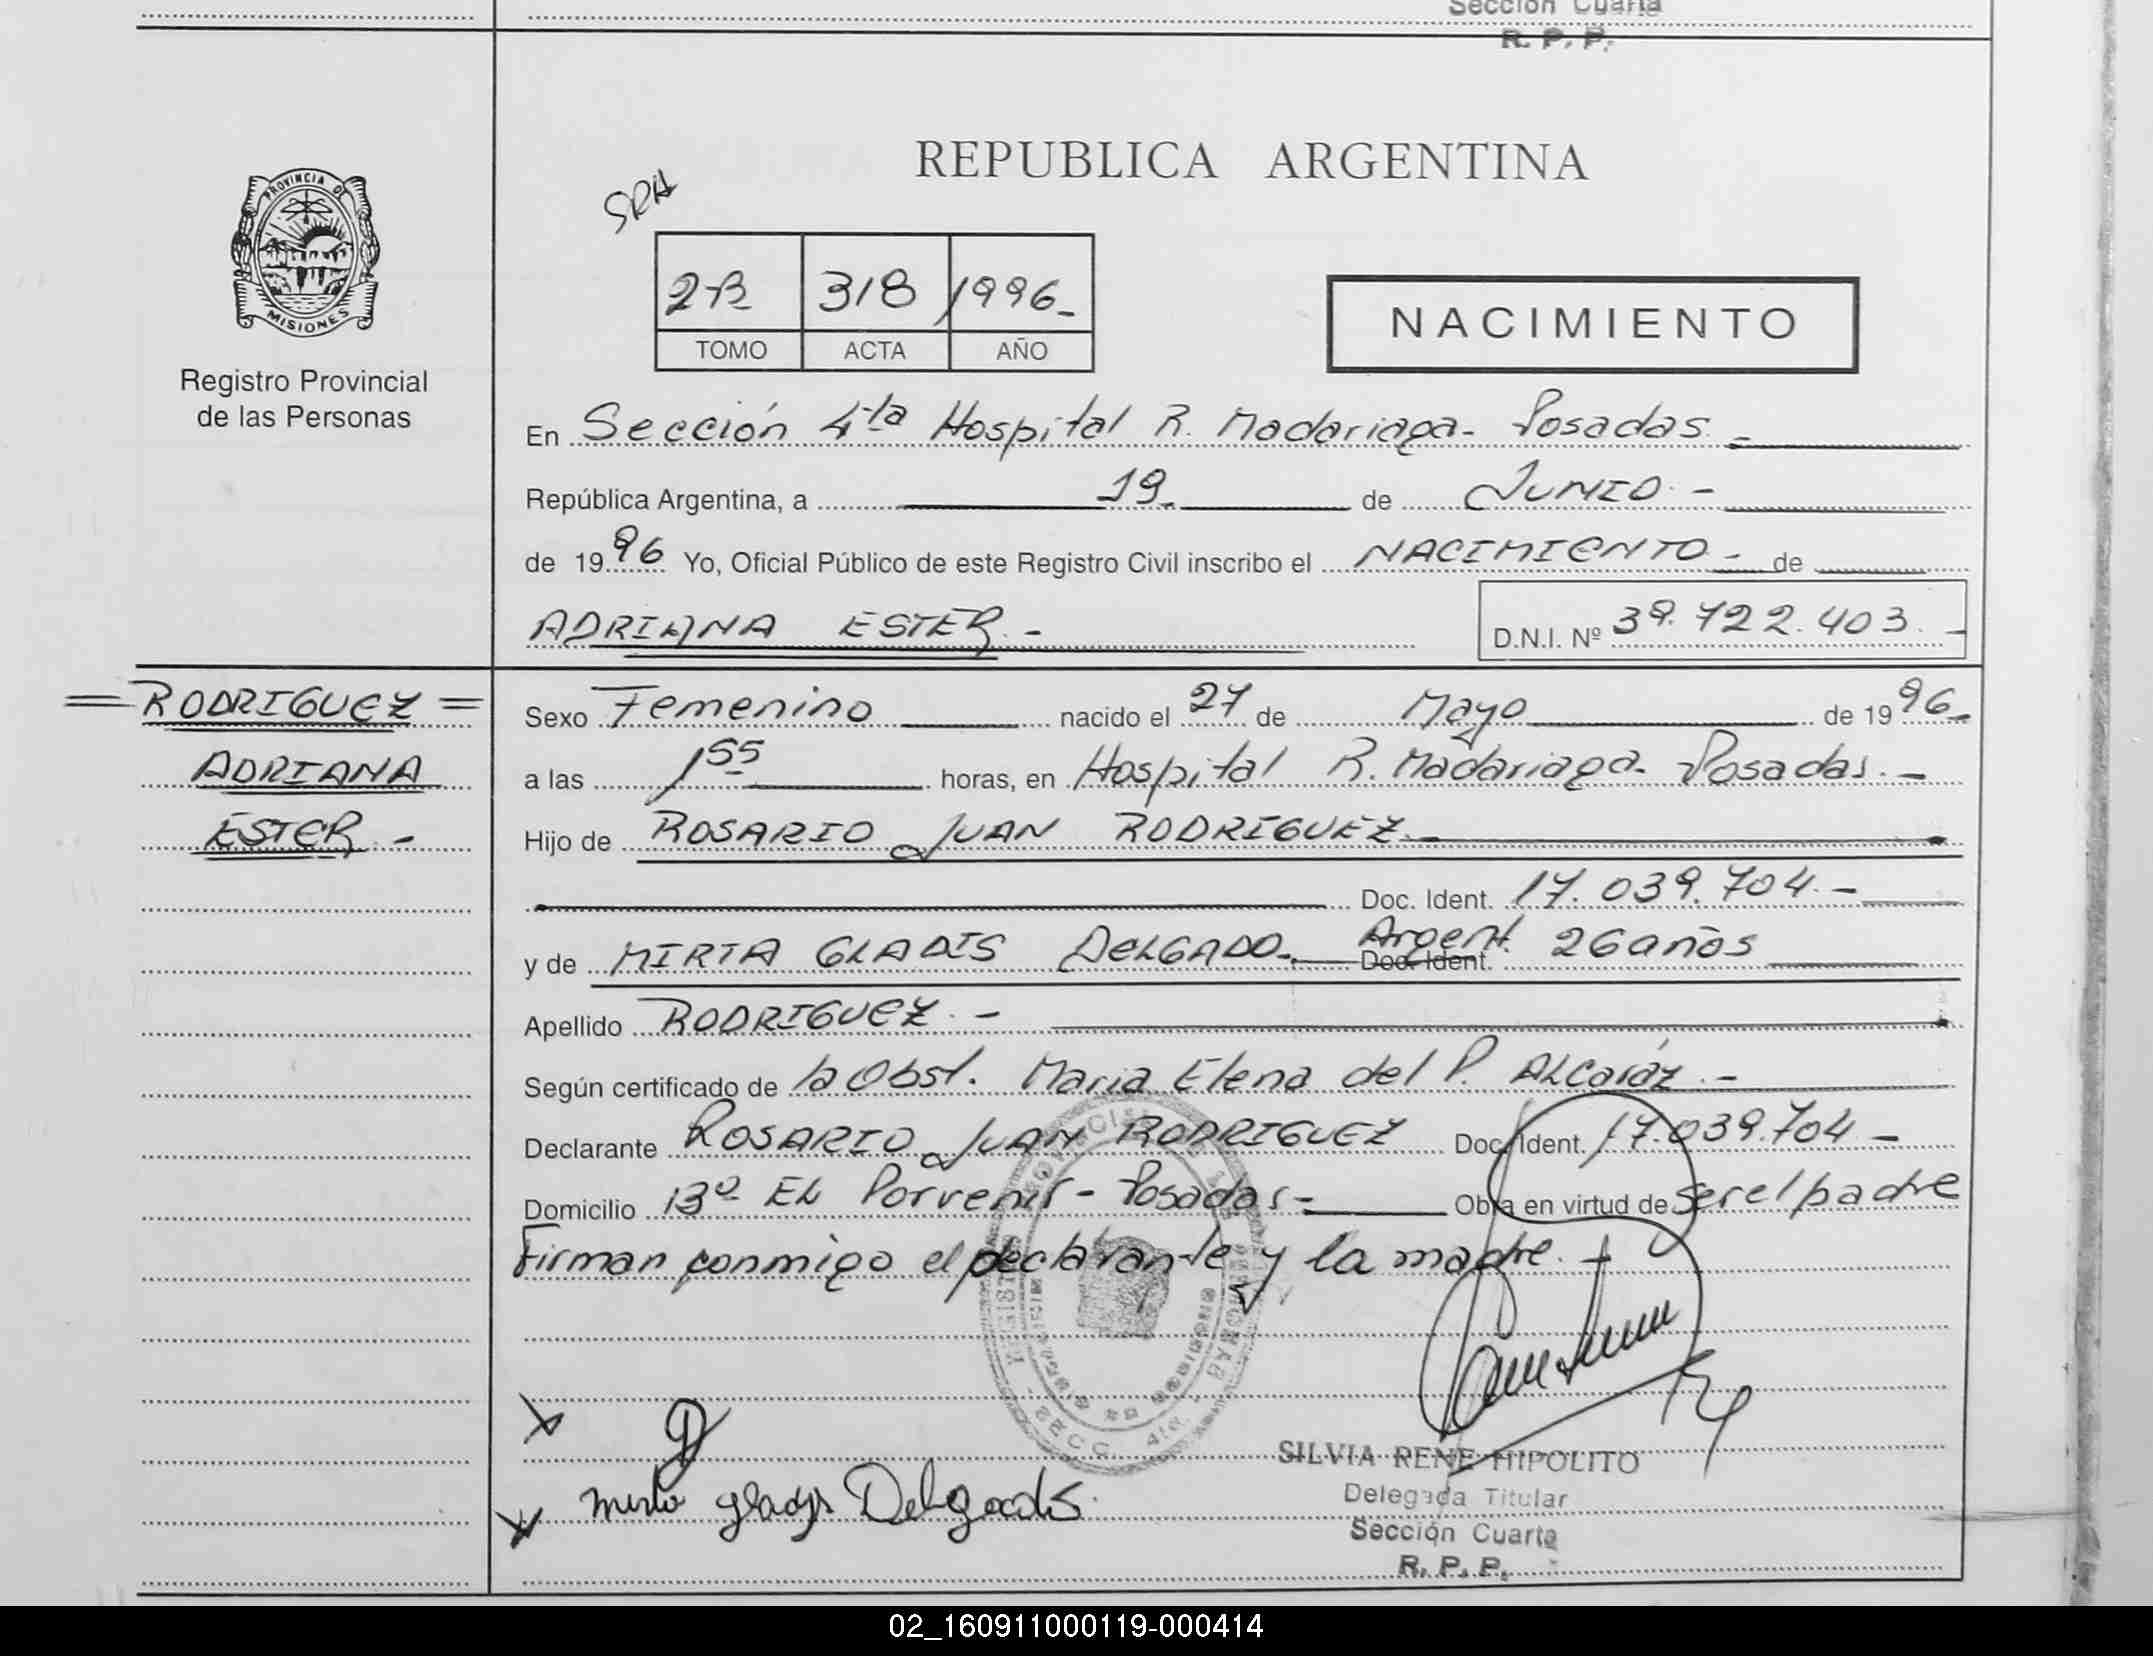 Sección Cuarta
R. P. P.
PROVINCIA DE
MISIONES
Registro Provincial
de las Personas
REPUBLICA ARGENTINA
SRA
2-B 318 1996-
TOMO ACTA AÑO
NACIMIENTO
En Sección 4ta Hospital R. Madariaga- Posadas.-
República Argentina, a 19- de JUNIO.-
de 1996 Yo, Oficial Público de este Registro Civil inscribo el NACIMIENTO- de
ADRIANA ESTER.-
D.N.I. Nº 39.722.403.-
= RODRIGUEZ =
ADRIANA
ESTER.-
Sexo Femenino nacido el 27 de Mayo de 1996-
a las 1 55 horas, en Hospital R. Madariaga- Posadas.-
Hijo de ROSARIO JUAN RODRIGUEZ.-
Doc. Ident. 17.039.704.-
y de MIRTA GLADIS DELGADO.- Argent. Doc. Ident. 26 años
Apellido RODRIGUEZ.-
Según certificado de la Obst. Maria Elena del P. ALCaráz.-
Declarante ROSARIO JUAN RODRIGUEZ Doc. Ident. 17.039.704-
Domicilio Bº EL Porvenir- Posadas- Obra en virtud de ser el padre
Firman conmigo el declarante y la madre.-
SECC. 4ta.
SILVIA RENE HIPOLITO
Delegada Titular
Sección Cuarta
R. P. P.
02_160911000119-000414